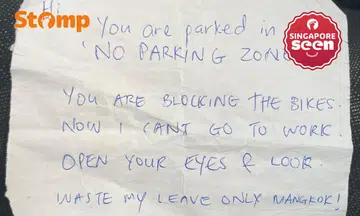 Stomp
SINGAPORE
seen
Hi
You are parked in
'NO PARKING ZON
YOU ARE BLOCKING THE BIKES.
NOW I CANT GO TO WORK.
OPEN YOUR EYES & LOOK.
WASTE MY LEAVE ONLY MANGKOK!